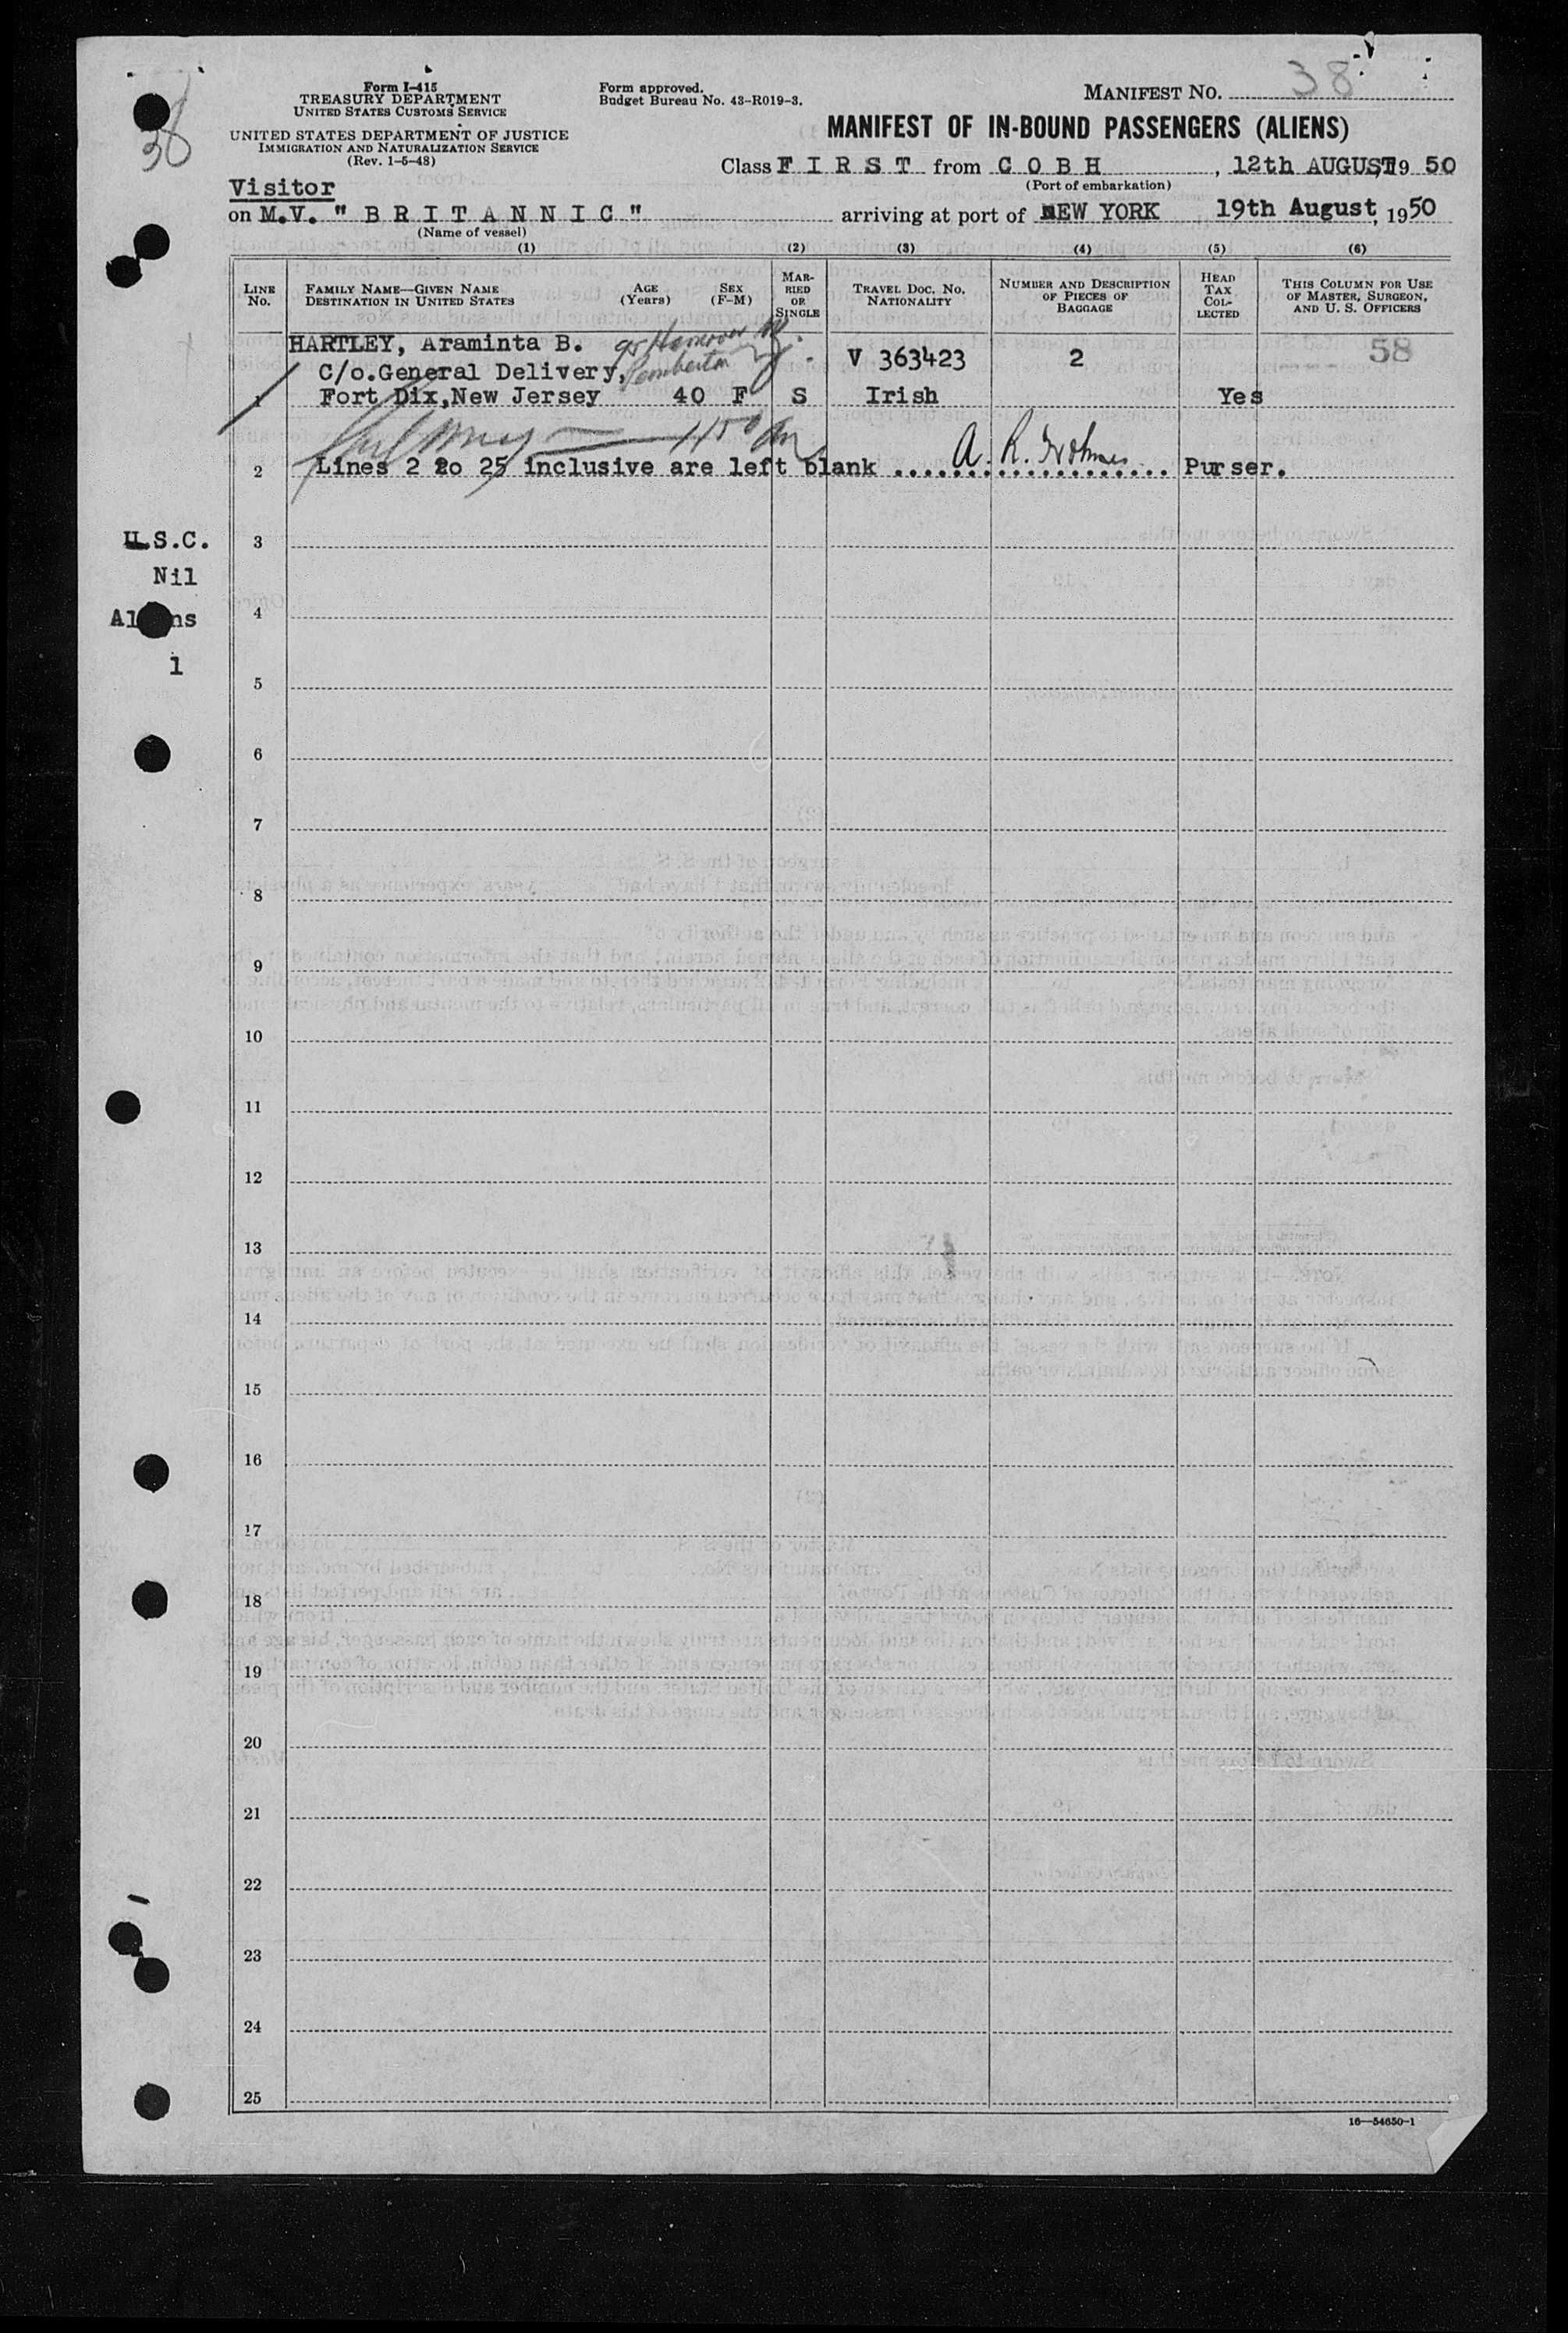 38
Form I-415
TREASURY DEPARTMENT
UNITED STATES CUSTOMS SERVICE
UNITED STATES DEPARTMENT OF JUSTICE
IMMIGRATION AND NATURALIZATION SERVICE
(Rev. 1-5-48)
Form approved.
Budget Bureau No. 43-R019-3.
MANIFEST NO. 38
MANIFEST OF IN-BOUND PASSENGERS (ALIENS)
Class F I R S T from C O B H, 12th AUGUST, 19 50
(Port of embarkation)
Visitor
on M.V. " B R I T A N N I C " arriving at port of NEW YORK 19th August, 1950
(Name of vessel)
(1) (2) (3) (4) (5) (6)
LINE NO. FAMILY NAME—GIVEN NAME DESTINATION IN UNITED STATES AGE (Years) SEX (F-M) MARRIED OR SINGLE TRAVEL DOC. NO. NATIONALITY NUMBER AND DESCRIPTION OF PIECES OF BAGGAGE HEAD TAX COLLECTED THIS COLUMN FOR USE OF MASTER, SURGEON, AND U. S. OFFICERS
HARTLEY, Araminta B. Hanover
C/o.General Delivery, Pemberton V 363423 2 58
1 Fort Dix,New Jersey 40 F S Irish Yes
2 Lines 2 to 25 inclusive are left blank .... A. R. Holmes .... Purser.
U.S.C.
Nil
Aliens
1
3
4
5
6
7
8
9
10
11
12
13
14
15
16
17
18
19
20
21
22
23
24
25
16—54650-1